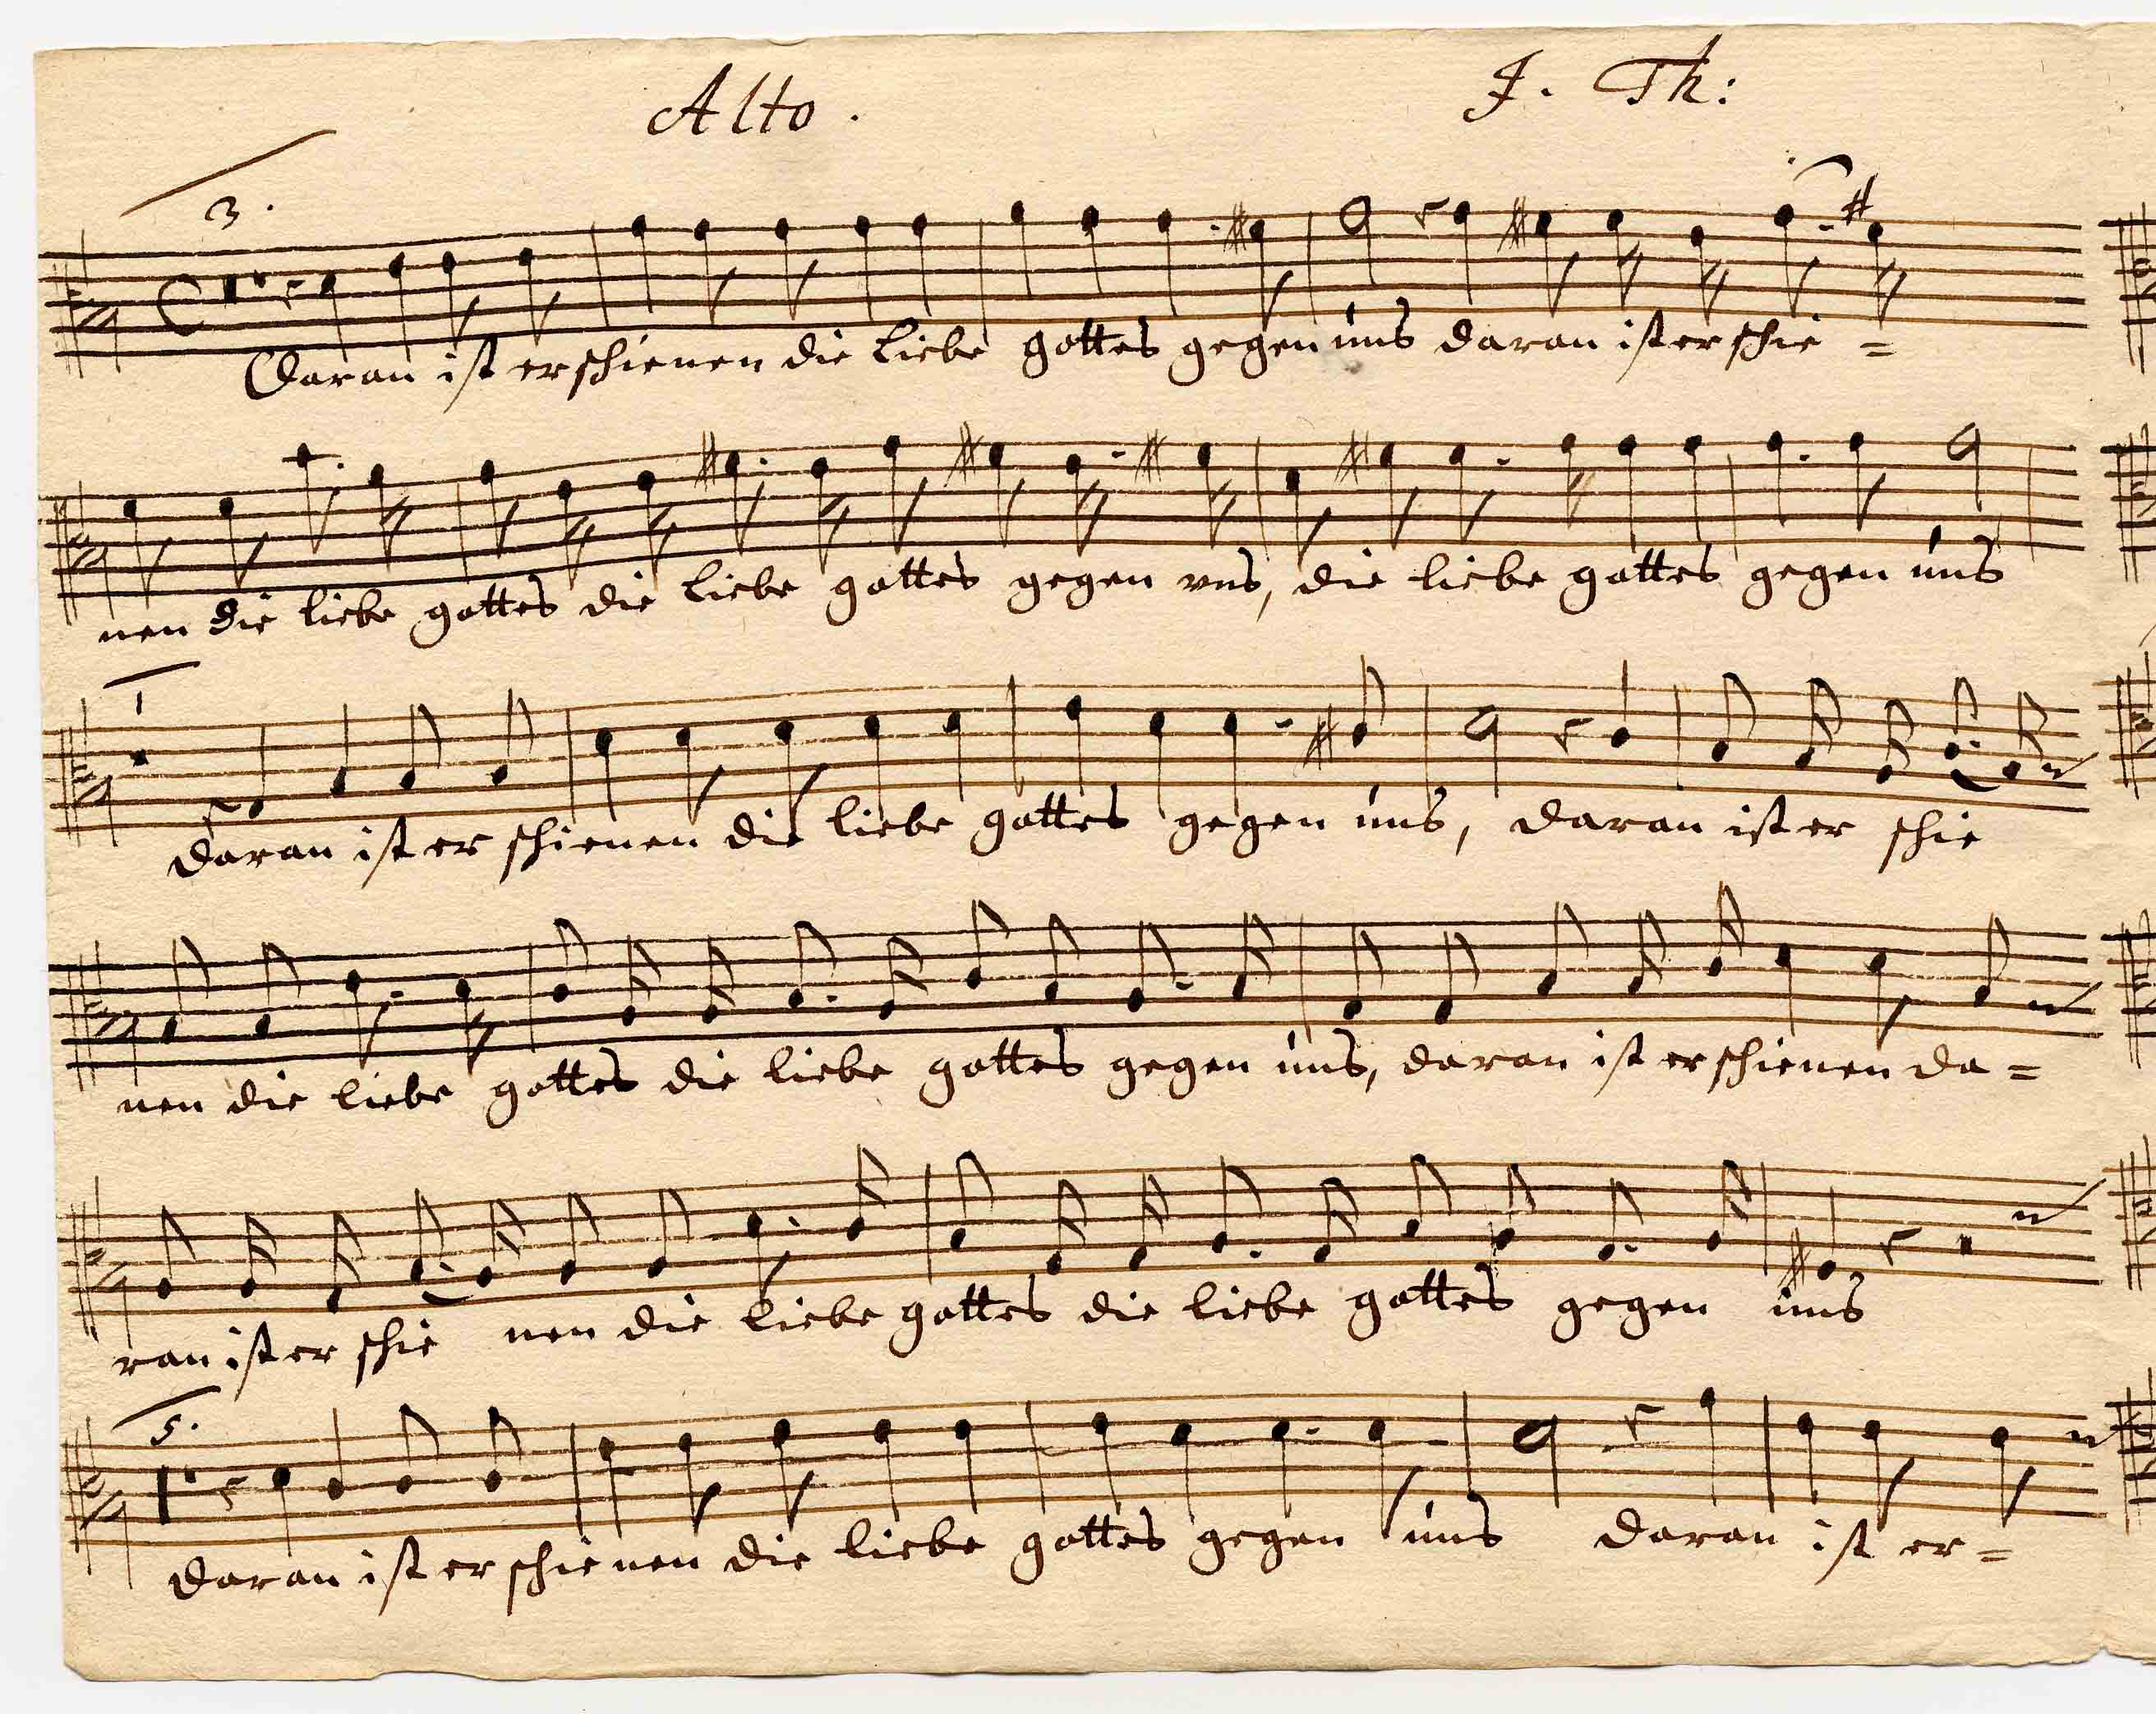 Alto. J. Th:
3.
Daran ist erschienen die Liebe gottes gegen uns daran ist erschie =
nen die liebe gottes die Liebe gottes gegen vns, die liebe gottes gegen uns
1
Daran ist er schienen die liebe gottes gegen uns, daran ist er schie
nen die liebe gottes die liebe gottes gegen uns, daran ist erschienen da =
ran ist er schie nen die liebe gottes die liebe gottes gegen uns
5.
Daran ist er schienen die liebe gottes gegen uns daran ist er =